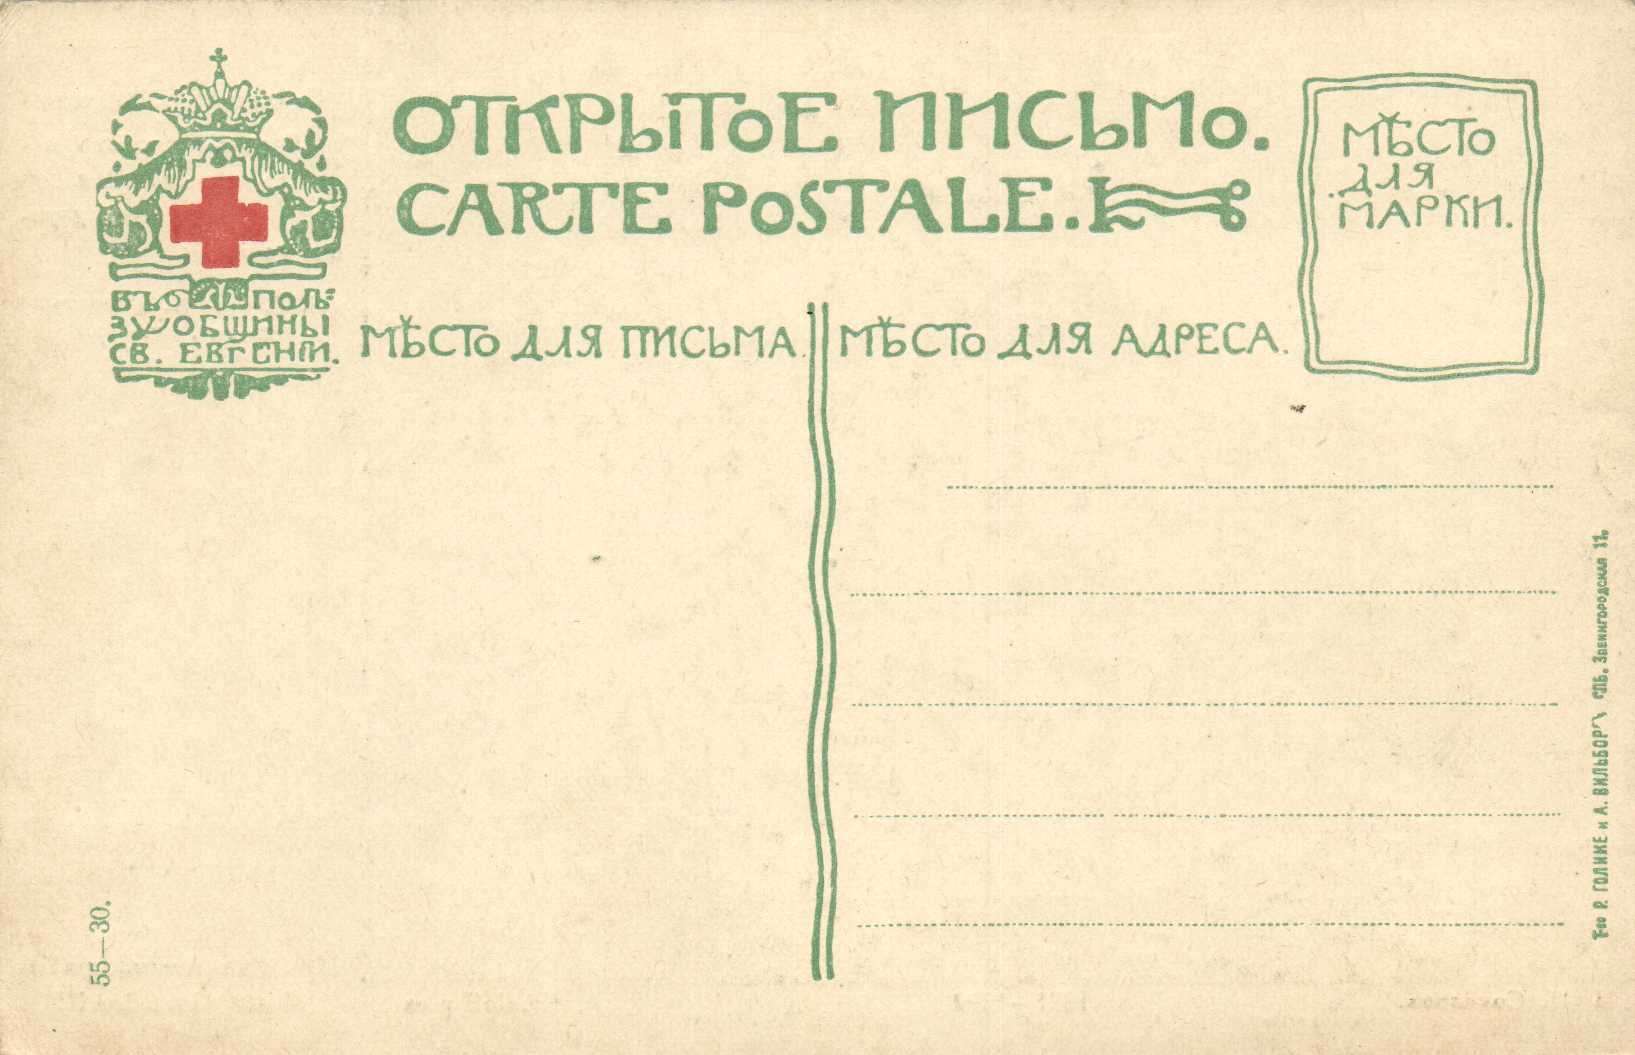 ОТКРЫТОЕ ПИСЬМО.
CARTE POSTALE.
МѢСТО
ДЛЯ
МАРКИ.
ВЪ ПОЛЬ=
ЗУ ОБЩИНЫ
СВ. ЕВГЕНIИ.
МѢСТО ДЛЯ ПИСЬМА.
МѢСТО ДЛЯ АДРЕСА.
55—30.
Т-во Р. ГОЛИКЕ и А. ВИЛЬБОРГЪ СПБ. Звенигородская 11.